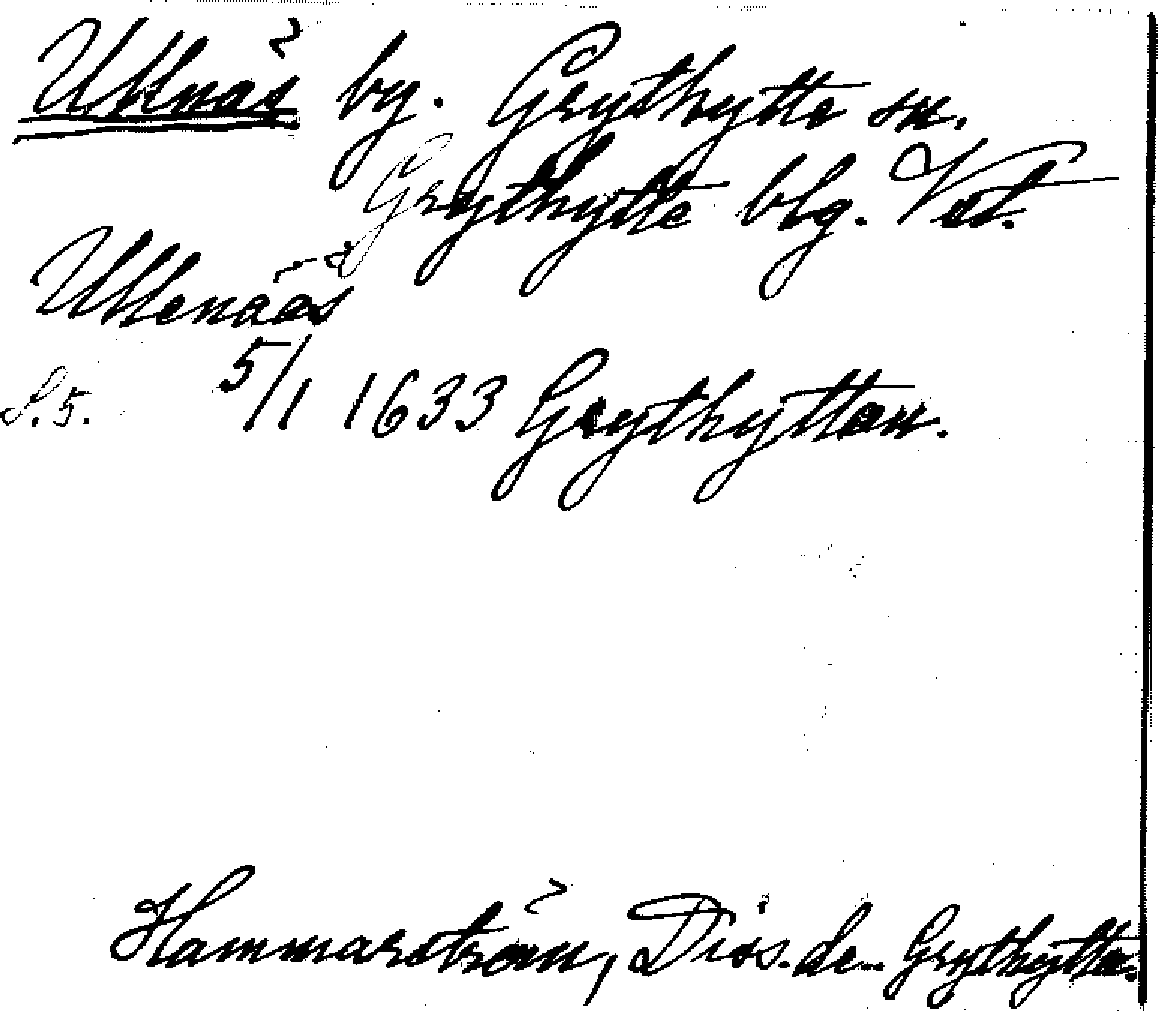 Ullnäs by. Grythytte sn.
Grythytte blg. Vstl.
Ullenääs
S. 5. 5/1 1633 Grythyttan.
Hammarström, Diss. de Grythytta.